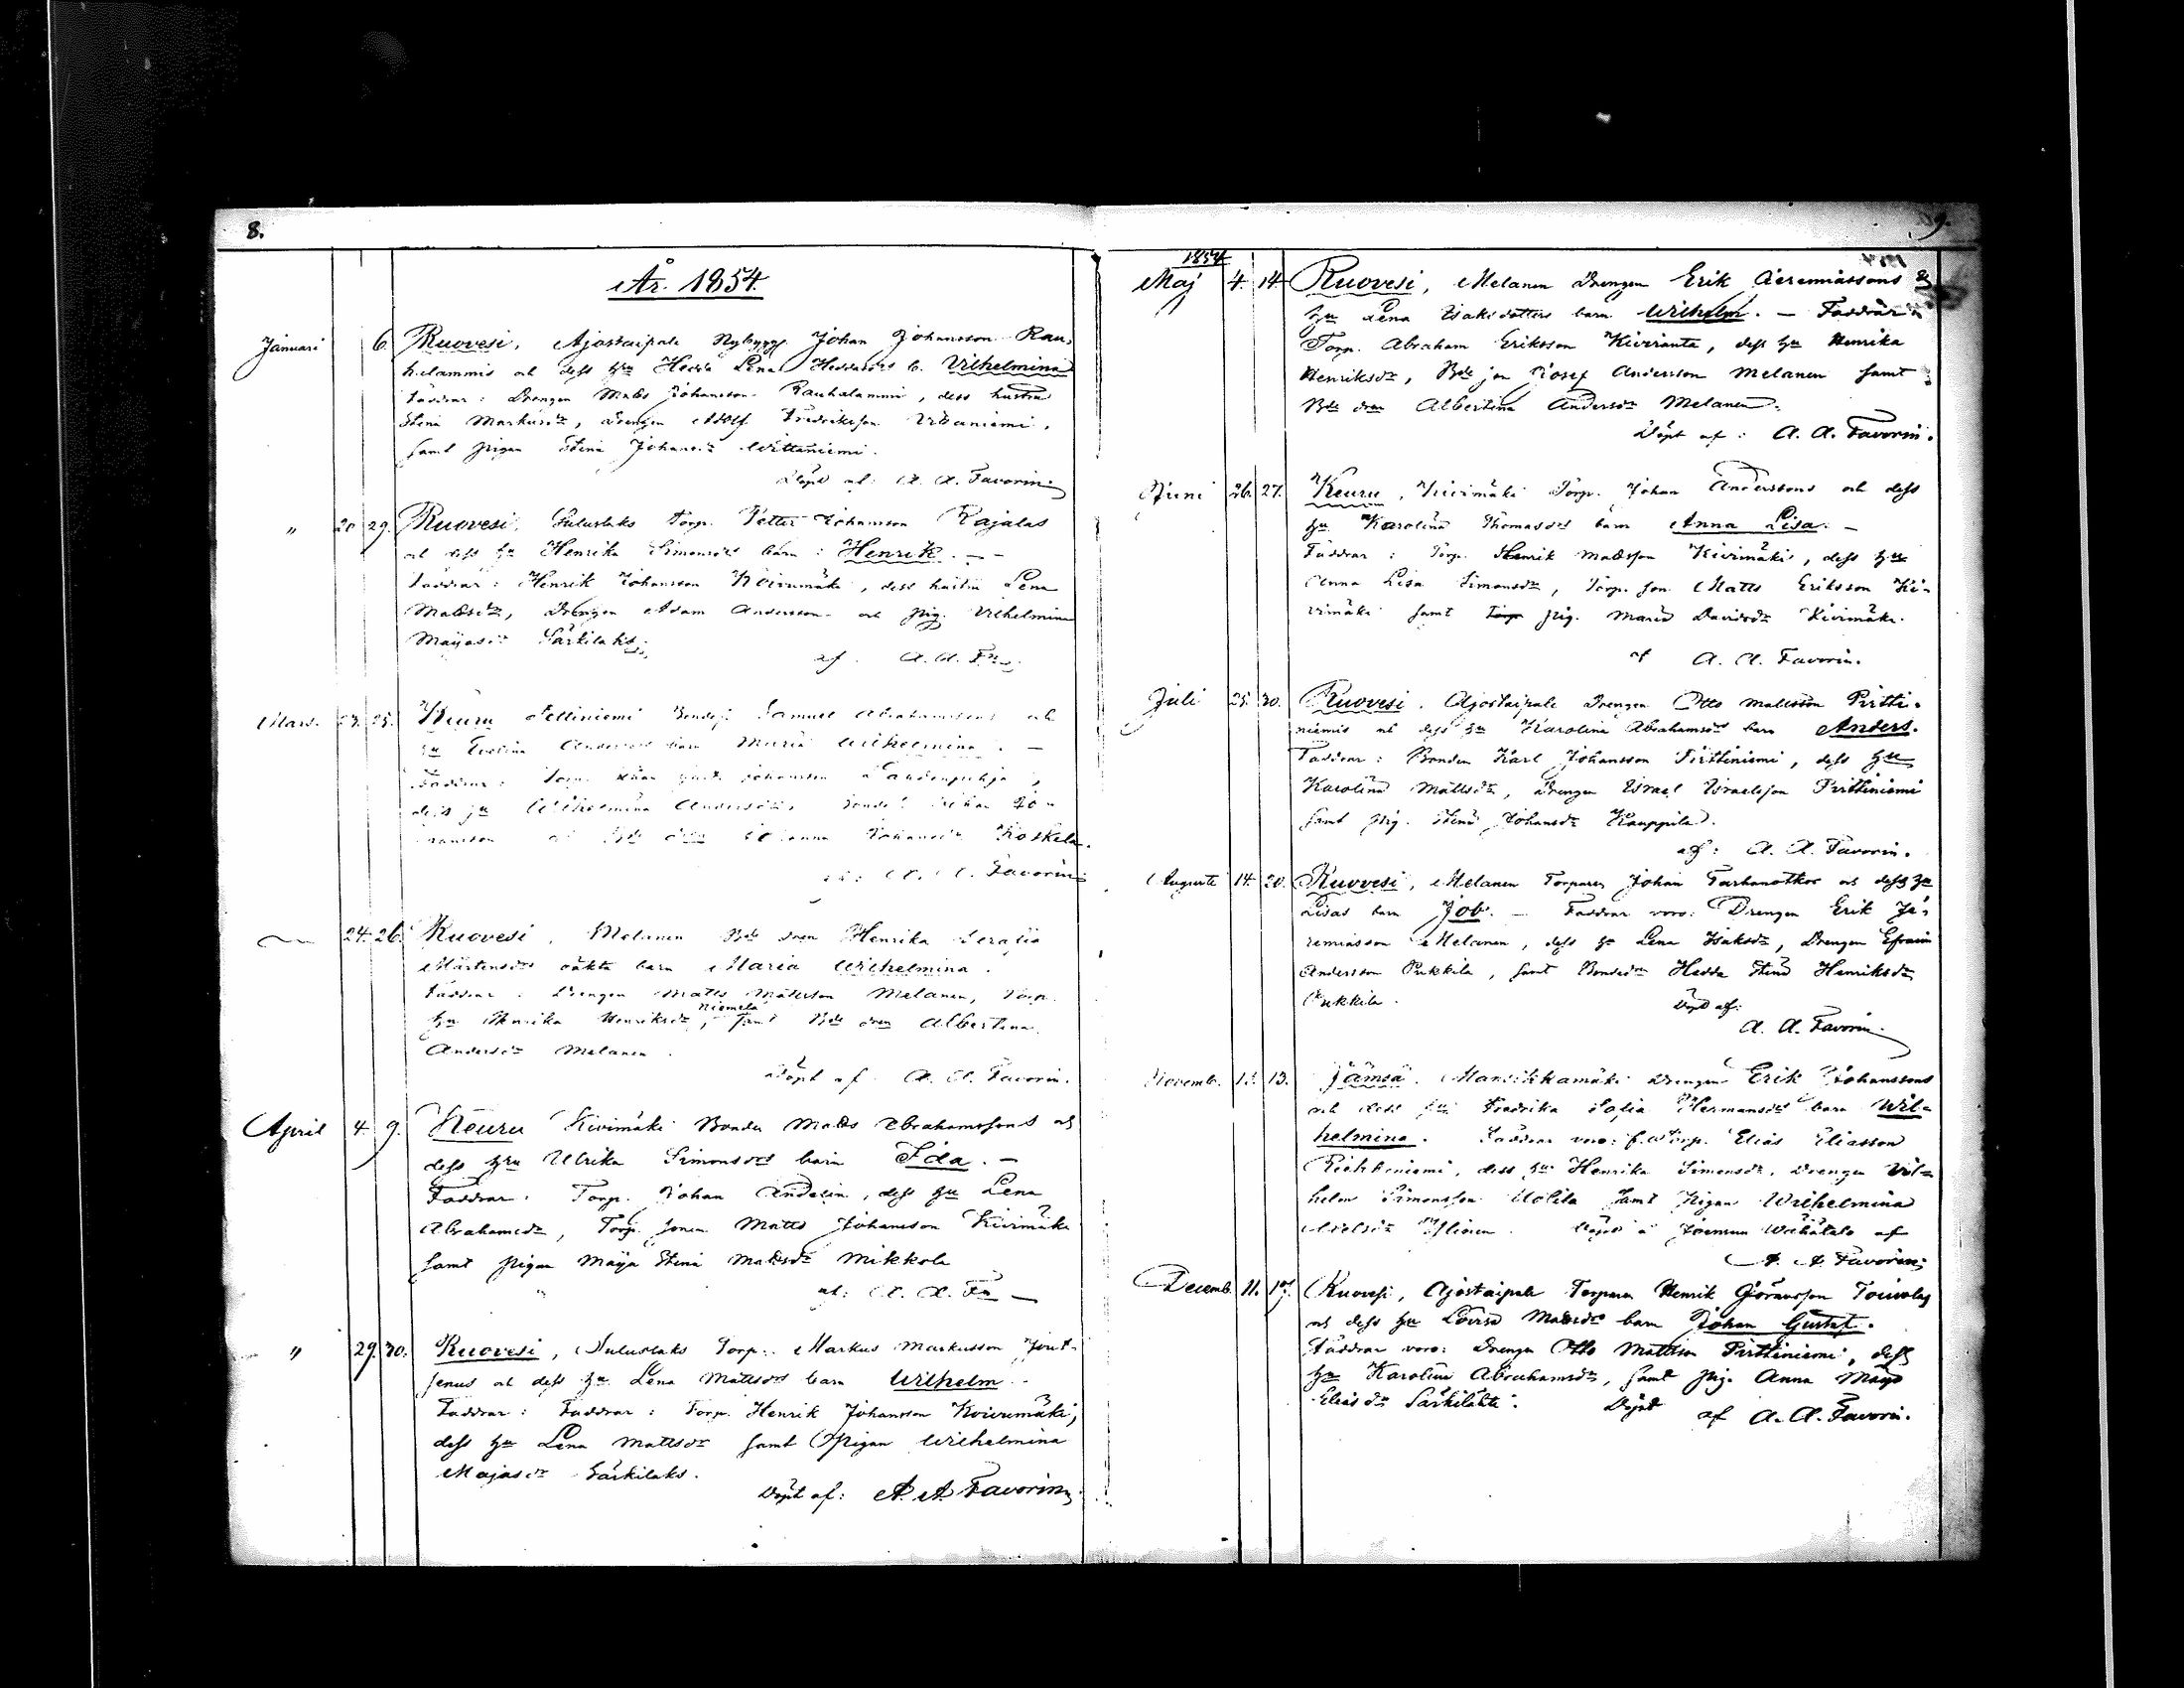 8.
År. 1854.
Januari 6. Ruovesi, Ajostaipale Nybygg. Johan Johansson Rau-
halammis och dess Hedda Lena b. Vilhelmina
Faddrar: Drengen Matts Johansson Rauhalammi, dess hustru
Stina Markusdr, Drengen Adolf Fredriksson
samt pigan Stina Johansdr Wittaniemi.
Döpt af: A. A. Favorin
" 20 29. Ruovesi, Torp. Petter Johansson Rajalas
och dess hu Henrika Simonsdrs barn: Henrik. —
Faddrar: Henrik Johansson Koivumäki, dess hustru Lena
Mattsdr, Drengen Adam Andersson och pig. Vilhelmina
Majasdr Särkilaks.
af. A. A. Fn
Mars. 23. 25. Keuru Samuel Abrahamssons och
hu barn Maria Wilhelmina. —
Faddrar: Torp. Johansson
dess hu Wilhelmina Andersdr,
Johansdr Koskela.
af: A. A. Favorin
24. 26. Ruovesi, Melanen Bde dren Henrika
Mårtensdrs oäkta barn Maria Wilhelmina.
Faddrar: Drengen Matts Mattsson Melanen, Torp.
Niemelä
hu Henrika Henriksdr, samt Bde dren Albertina
Andersdr Melanen.
Döpt af A. A. Favorin.
April 4. 9. Keuru Kivimäki Bonden Matts Abrahamssons och
dess hru Ulrika Simonsdrs barn Ida. —
Faddrar: Torp. Johan Andelin, dess hu Lena
Abrahamsdr, Torp. sonen Matts Johansson Kivimäki
samt pigan Maija Stina Mattsdr Mikkola
af: A. A. Fn —
" 29. 30. Ruovesi, Torp. Markus Markusson
och dess hu Lena Mattsdrs barn Wilhelm.
Faddrar: Faddrar: Torp. Henrik Johansson Koivumäki,
dess hu Lena Mattsdr samt Pigan Wilhelmina
Majasdr Särkilaks.
Döpt af: A. A. Favorin
9.
1854
Maj 4. 14. Ruovesi, Melanen Drengen Erik Jeremiassons &
hu Lena Isaksdotters barn Wilhelm. — Faddrar:
Torp. Abraham Eriksson Kiviranta, dess hu Henrika
Henriksdr, Bde son Josef Andersson Melanen samt
Bde dren Albertina Andersdr Melanen.
Döpt af: A. A. Favorin.
Juni 26. 27. Keuru, Kivimäki Torp. Johan Anderssons och dess
hu Karolina Thomasdrs barn Anna Lisa. —
Faddrar: Torp. Henrik Mattsson Kivimäki, dess hu
Anna Lisa Simonsdr, Torp. son Matts Eriksson Ki-
vimäki samt Torp. pig. Maria Davidsdr Kivimäki.
af A. A. Favorin.
Juli 25. 30. Ruovesi. Ajostaipale Drengen Otto Mattsson Pirtti-
niemis och dess hu Karolina Abrahamsdrs barn Anders.
Faddrar: Bonden Karl Johansson Pirttiniemi, dess hu
Karolina Mattsdr, Drengen Israel Israelsson Pirttiniemi
samt pig. Stina Johansdr Kauppila.
af: A. A. Favorin.
Augusti 14. 20. Ruovesi, Melanen Torparen Johan Tarhanotkos och dess hu
Lisas barn Job. — Faddrar voro: Drengen Erik Je-
remiasson Melanen, dess hu Lena Isaksdr, Drengen Efraim
Andersson Pukkila, samt Bondedr Hedda Stina Henriksdr
Pukkila. Döpt af:
A. A. Favorin.
Novemb. 13. Jämsä. Mansikkamäki Drengen Erik Johanssons
och dess hu Fredrika Sofia Hermansdrs barn Wil-
helmina. Faddrar voro: Torp. Elias Eliasson
dess hu Henrika Simonsdr, Drengen Wil-
helm Simonsson Uotila samt Pigan Wilhelmina
Döpt i af
A. A. Favorin
Decemb. 11. 17. Ruovesi, Ajostaipale Torparen Henrik Göransson Toivolas
och dess hu Lovisa Mattsdrs barn Johan Gustaf.
Faddrar voro: Drengen Otto Mattsson Pirttiniemi, dess
hu Karolina Abrahamsdr, samt pig. Anna Maja
Eliasdr Särkilahti. Döpt af A. A. Favorin.